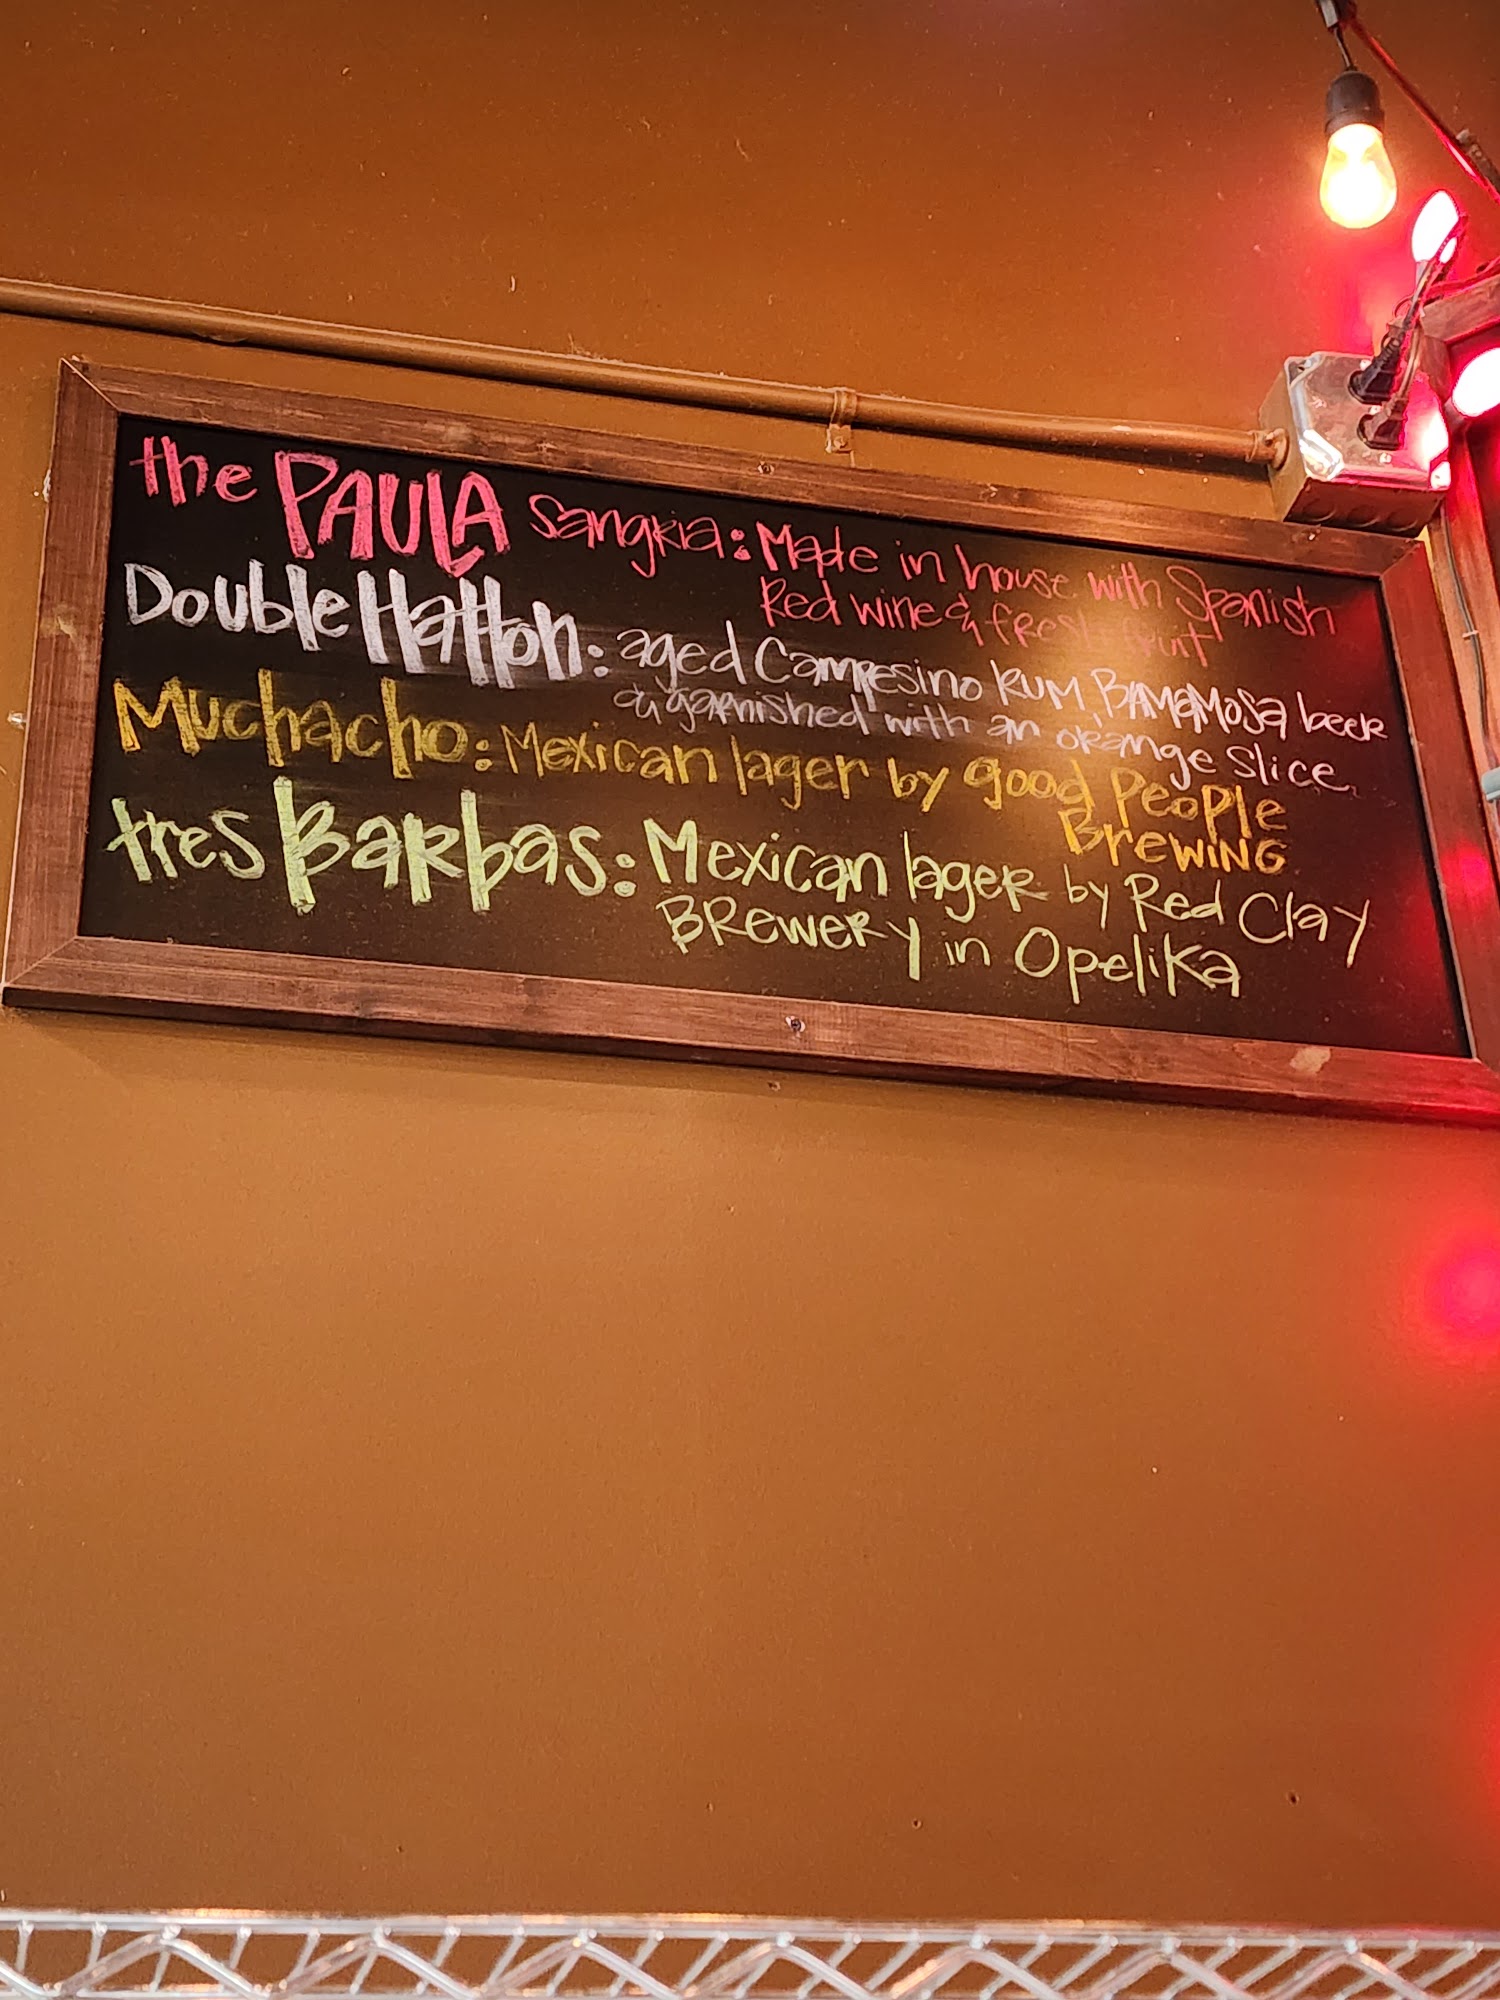 the PAULA Sangria: Made in house with Spanish
Red wine & fresh fruit
Double Hatton: aged Campesino Rum, BAMAMOSA beer
& garnished with an orange slice
Muchacho: Mexican lager by good People
Brewing
tres Barbas: Mexican lager by Red Clay
Brewery in Opelika